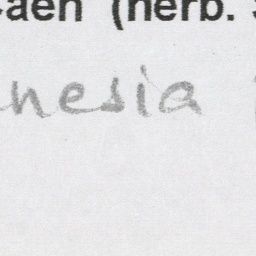 Caen (herb.
nesia